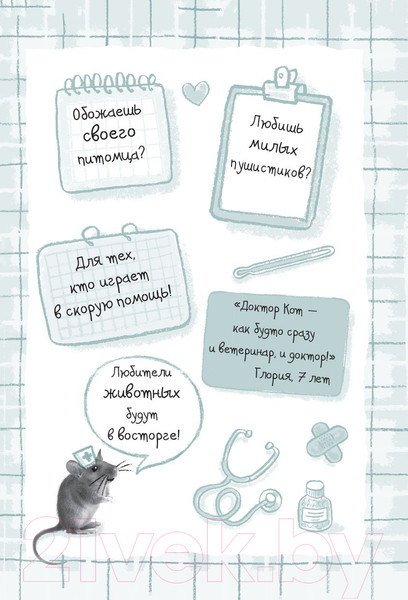 Обожаешь
своего
питомца?
Любишь
милых
пушистиков?
Для тех,
кто играет
в скорую помощь!
«Доктор Кот —
как будто сразу
и ветеринар, и доктор!»
Глория, 7 лет
Любители
животных
будут
в восторге!
21vek.by